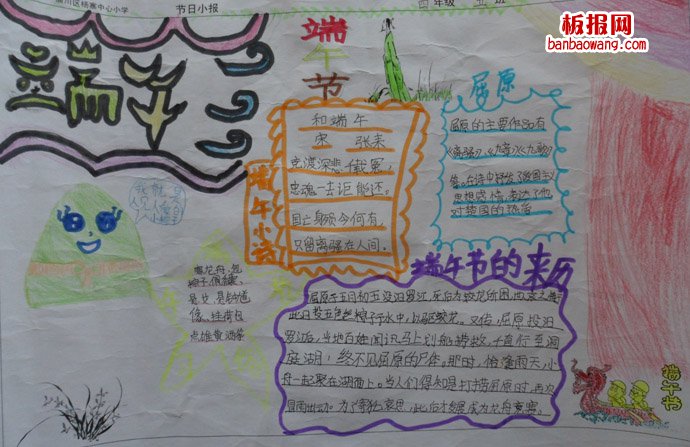 淄川区杨寨中心小学
节日小报
四年级
班
板报网
banbaowang.com
端午
端午节
屈原
和端午
宋 张耒
竞渡深悲千载冤,
忠魂一去讵能还。
国亡身殒今何有,
只留离骚在人间。
端午小诗
屈原的主要作品有
《离骚》、《九章》《九歌》
等。在诗中抒发了爱国主义
思想感情,表达了他
对楚国的热爱
我就是
人见人爱
赛龙舟,包
粽子,佩香囊,
悬艾,悬钟馗
像,挂荷包
点雄黄酒等
端午节的来历
屈原于五月初五投汨罗江,死后为蛟龙所困,世人哀之,每
此日投五色丝粽子于水中,以驱蛟龙。又传,屈原投汨
罗江后,当地百姓闻讯马上划船捞救,一直行至洞
庭湖,终不见屈原的尸体。那时,恰逢雨天,小
舟一起聚在湖面上。当人们得知是打捞屈原时,再次
冒雨出动。为了寄托哀思,此后才发展成为龙舟竞赛。
端午节